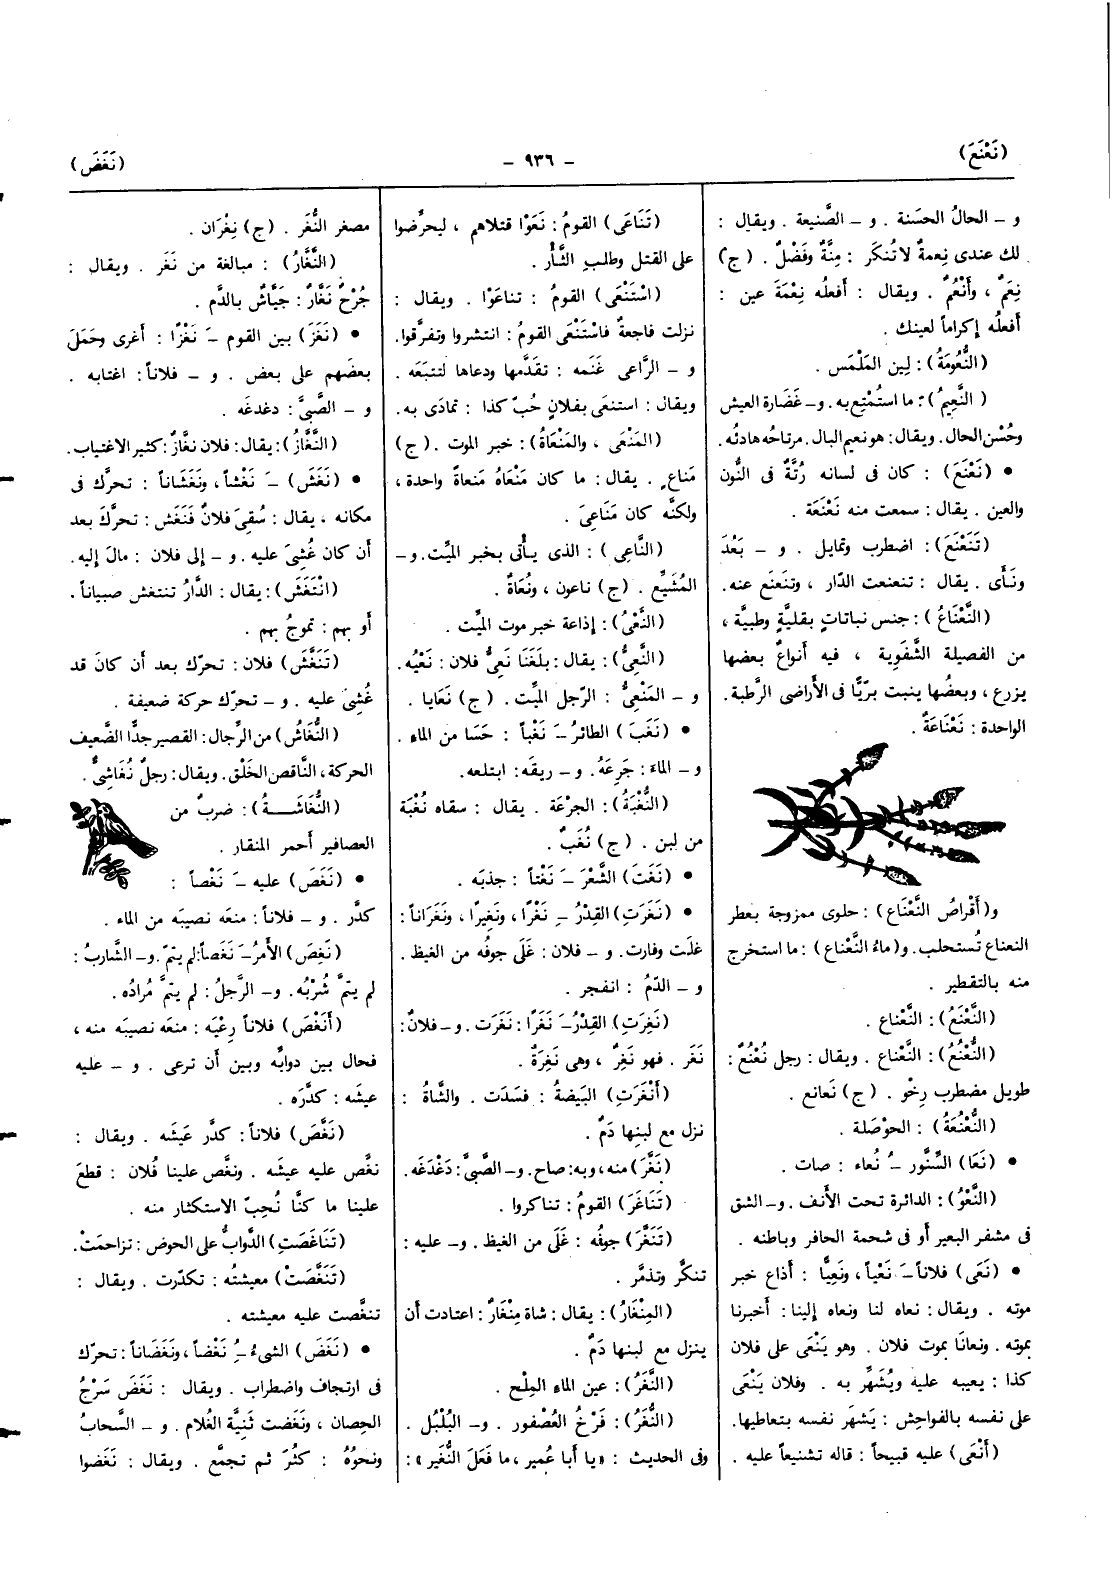 (نَعْنَعَ)
– ٩٣٦ –
(نَغَضَ)
و – الحالُ الحسَنة . و – الصَّنيعة . ويقال :
لك عندى نِعمةٌ لا تُنكَر : مِنَّةٌ وفَضْلٌ . (ج)
نِعَمٌ ، وأَنْعُمٌ . ويقال : أفعلُه نِعْمَةَ عين :
أفعلُه إكراماً لعينك .
(النُّعُومَةُ) : لِين المَلْمَس .
(النَّعِيمُ) : ما استُمْتِع به . و – غَضَارة العيش
وحُسْن الحال . ويقال : هو نعيم البال . مرتاحُه هادئُه .
• (نَعْنَعَ) : كان فى لسانه رُتَّةٌ فى النُّون
والعين . يقال : سمعت منه نَعْنَعَة .
(تَنَعْنَعَ) : اضطرب وتمايل . و – بَعُدَ
ونَأَى . يقال : تنعنعت الدّار ، وتنَعنَع عنه .
(النَّعْنَاعُ) : جنس نباتاتٍ بقليَّةٍ وطبيَّة ،
من الفصيلة الشَّفَوِية ، فيه أنواعٌ بعضها
يزرع ، وبعضُها ينبت برّيًّا فى الأراضى الرَّطبة .
الواحدة : نَعْنَاعَةٌ .
و (أَقْراصُ النَّعْناع) : حلوى ممزوجة بعطر
النعناع تُستحلب . و (ماءُ النَّعْناع) : ما استخرج
منه بالتقطير .
(النَّعْنَعُ) : النَّعْناع .
(النُّعْنُعُ) : النَّعْناع . ويقال : رجل نُعْنُعٌ :
طويل مضطرب رِخْو . (ج) نَعانع .
(النُّعْنُعَةُ) : الحوْصَلة .
• (نَعَا) السِّنَّور – ُ نُعاء : صات .
(النَّعْوُ) : الدائرة تحت الأنف . و – الشق
فى مشفر البعير أو فى شحمة الحافر وباطنه .
• (نَعَى) فلاناً – َ نَعْياً ، ونَعِيًّا : أذاع خبر
موته . ويقال : نعاه لنا ونعاه إلينا : أخبرنا
بموته . ونعانَا بموت فلان . وهو يَنْعَى على فلان
كذا : يعيبه عليه ويُشَهِّر به . وفلان يَنْعَى
على نفسه بالفواحِش : يَشهَر نفسه بتعاطيها .
(أَنْعَى) عليه قبيحاً : قاله تشنيعاً عليه .
(تَنَاعَى) القومُ : نَعَوْا قتلاهم ، ليحرِّضوا
على القتل وطلبِ الثَّأر .
(اسْتَنْعَى) القومُ : تناعَوْا . ويقال :
نزلت فاجعةٌ فاسْتَنْعَى القومُ : انتشروا وتفرَّقوا .
و – الرَّاعى غَنَمه : تقَدَّمها ودعاها لتتبَعَه .
ويقال : استنعَى بفلانٍ حُبّ كذا : تمادَى به .
(المَنْعَى ، والمَنْعَاةُ) : خبر الموت . (ج)
مَناعٍ . يقال : ما كان مَنْعَاهُ مَنعاةً واحدة ،
ولكنَّه كان مَنَاعِىَ .
(النَّاعِى) : الذى يأتى بخبر الميِّت . و –
المُشَيِّع . (ج) ناعون ، ونُعَاةٌ .
(النَّعْىُ) : إذاعة خبر موت الميِّت .
(النَّعِىُّ) : يقال : بلَغَنَا نَعِىُّ فلان : نَعْيُه .
و – المَنْعِىُّ : الرّجل الميِّت . (ج) نَعَايا .
• (نَغَبَ) الطائرُ – َ نَغْباً : حَسَا من الماء .
و – الماءَ : جَرِعَهُ . و – ريقَه : ابتلعه .
(النُّغْبَةُ) : الجرْعَة . يقال : سقاه نُغْبَة
من لبن . (ج) نُغَبٌ .
• (نَغَتَ) الشَّعْرَ – َ نَغْتاً : جذبَه .
• (نَغَرَتِ) القِدْرُ – ِ نَغْرًا ، ونَغِيرًا ، ونَغَرَاناً :
غلَت وفارت . و – فلان : غَلَى جوفُه من الغيظ .
و – الدّمُ : انفجر .
(نَغِرَتِ) القِدْرُ – َ نَغَرًا : نَغَرَت . و – فلانٌ :
نَغَر . فهو نَغِرٌ ، وهى نَغِرَةٌ .
(أَنْغَرَتِ) البَيضةُ : فسَدَت . والشَّاةُ :
نزل مع لبنِها دَمٌ .
(نَغَّرَ) منه ، وبه : صاح . و – الصَّبىَّ : دَغْدَغَه .
(تَنَاغَرَ) القومُ : تناكروا .
(تَنَغَّرَ) جوفُه : غَلَى من الغيظ . و – عليه :
تنكَّر وتذمَّر .
(المِنْغَارُ) : يقال : شاة مِنْغَارٌ : اعتادت أن
ينزل مع لبنها دَمٌ .
(النَّغَرُ) : عين الماء المِلْح .
(النُّغَرُ) : فَرْخُ العُصْفور . و – البُلْبُل .
وفى الحديث : «يا أبا عُمير ، ما فَعَلَ النُّغَير» :
مصغر النُّغَر . (ج) نِغْرَان .
(النَّغَّارُ) : مبالغة من نَغَر . ويقال :
جُرْحٌ نَغَّارٌ : جَيَّاشٌ بالدَّم .
• (نَغَزَ) بين القوم – َ نَغْزًا : أغرى وحَمَلَ
بعضَهم على بعض . و – فلاناً : اغتابه .
و – الصَّبىَّ : دغدغَه .
(النَّغَّازُ) : يقال : فلان نغَّازٌ : كثير الاغتياب .
• (نَغَشَ) – َ نَغْشاً ، ونَغَشَاناً : تحرَّك فى
مكانه ، يقال : سُقِىَ فلانٌ فَنَغَش : تحرَّكَ بعد
أن كان غُشِىَ عليه . و – إلى فلان : مالَ إليه .
(انْتَغَشَ) : يقال : الدَّارُ تنتغش صبياناً .
أو بهم : تموجُ بهم .
(تَنَغَّشَ) فلان : تحرّك بعد أن كانَ قد
غُشِىَ عليه . و – تحرّك حركة ضعيفة .
(النُّغَاش) من الرِّجال : القصير جدًّا الضَّعيف
الحركة ، النَّاقص الخَلْق . ويقال : رجلٌ نُغَاشِىٌّ .
(النُّغَاشَةُ) : ضربٌ من
العصافير أحمر المنقار .
• (نَغَصَ) عليه – َ نَغْصاً :
كدَّر . و – فلاناً : منعَه نصيبَه من الماء .
(نَغِصَ) الأمرُ – َ نَغَصاً : لم يتمّ . و – الشَّاربُ :
لم يتمَّ شُرْبُه . و – الرَّجلُ : لم يتمَّ مُرادُه .
(أَنْغَصَ) فلاناً رِعْيَه : منعَه نصيبَه منه ،
فحال بين دوابِّه وبين أن ترعى . و – عليه
عيشَه : كدَّرَه .
(نَغَّصَ) فلاناً : كدَّر عَيشَه . ويقال :
نغَّص عليه عيشَه . ونغَّص علينا فُلان : قطعَ
علينا ما كنَّا نُحِبّ الاستكثار منه .
(تَنَاغَصَتِ) الدَّوابُّ على الحوض : تزاحمَتْ .
(تَنَغَّصَتْ) معيشتُه : تكدّرت . ويقال :
تنغَّصت عليه معيشته .
• (نَغَضَ) الشىءُ – ُِ نَغْضاً ، ونَغَضَاناً : تحرّك
فى ارتجاف واضطراب . ويقال : نَغَضَ سَرْجُ
الحِصان ، ونَغَضت ثَنِيَّة الغُلام . و – السَّحابُ
ونحوُهُ : كثُرَ ثم تجمَّع . ويقال : نَغَضوا